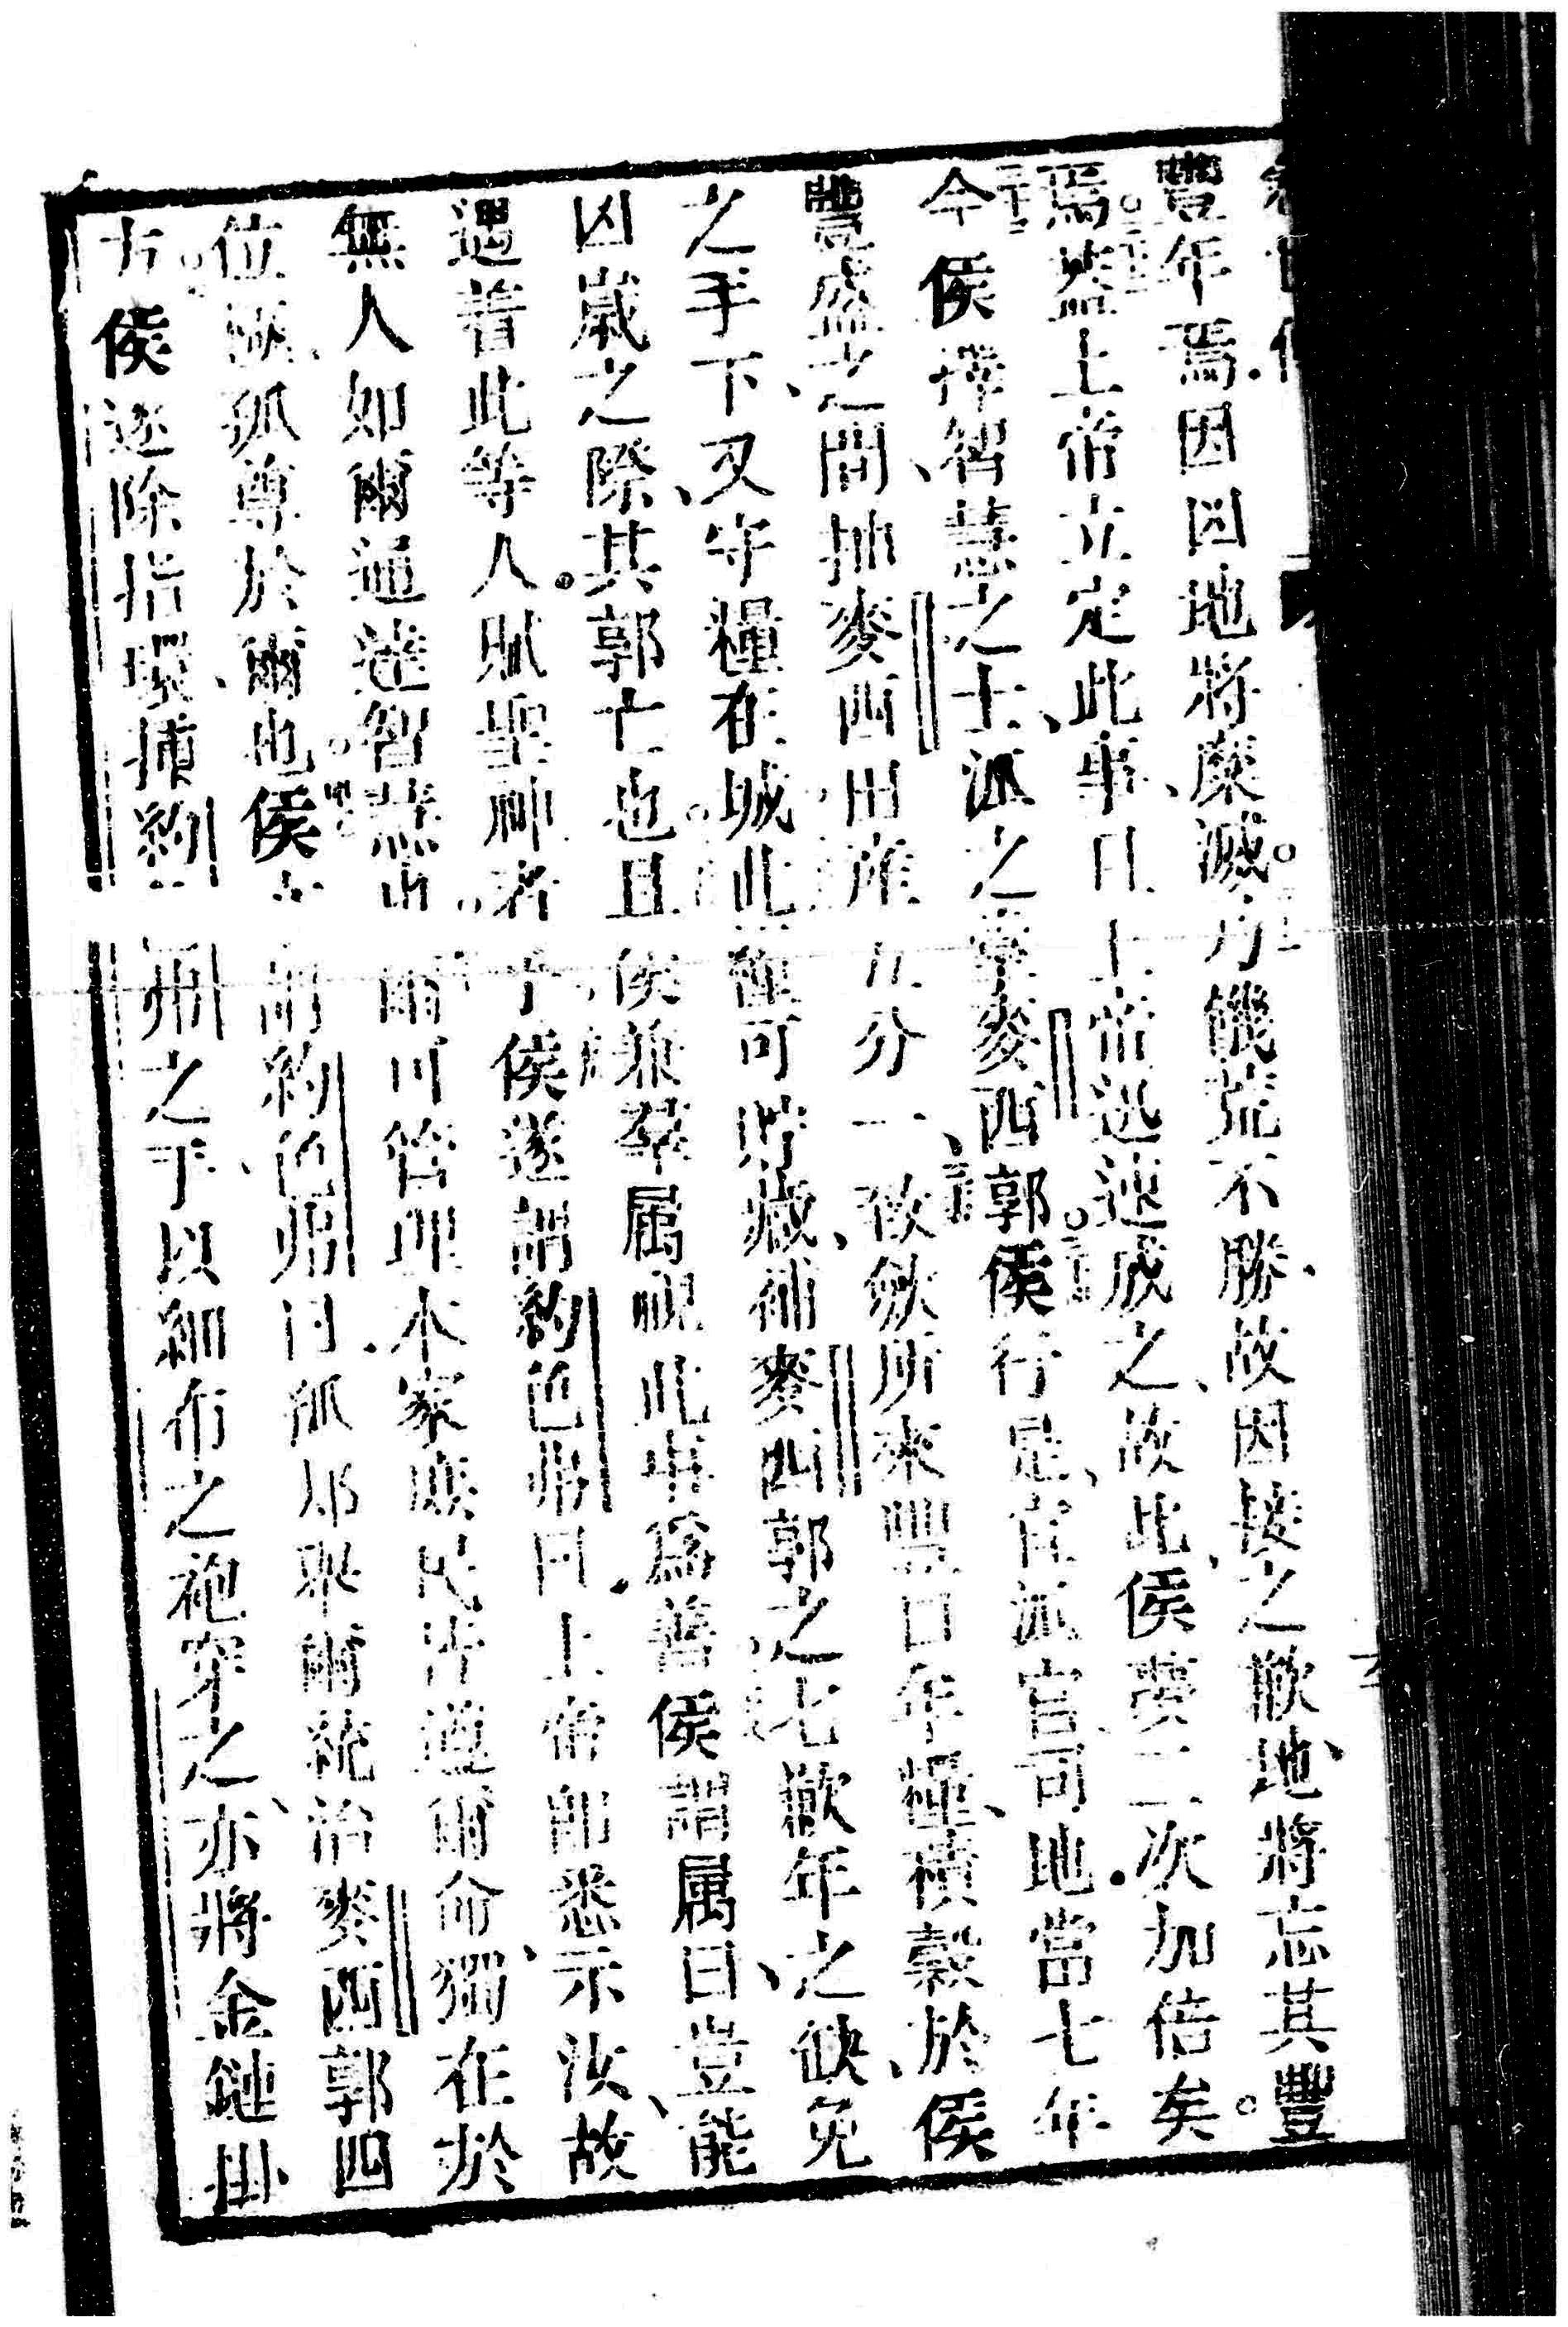 豐年焉因凶地將糜滅乃饑荒不勝故因接之歉地將忘其豐
焉蓋上帝立定此事且上帝迅速成之故此侯夢二次加倍矣
今侯擇智慧之士派之掌麥西郭侯行是宜派官司地當七年
豐盛之間抽麥西田產五分一致斂所來豐年糧積穀於侯
之手下又守糧在城此糧可貯藏補麥西郭之七歉年之缺免
凶歲之際其郭亡也且侯兼羣属視此事為善侯謂属曰豈能
遇着此等人賦聖神者乎侯遂謂約色弗曰上帝即悉示汝故
無人如爾通達智慧爾可管理本家庶民咸遵爾命獨在於
位朕孤尊於爾也侯謂約色弗曰孤却舉爾統治麥西郭四
方侯遂除指環插約色弗之手以細布之袍穿之亦將金鏈掛